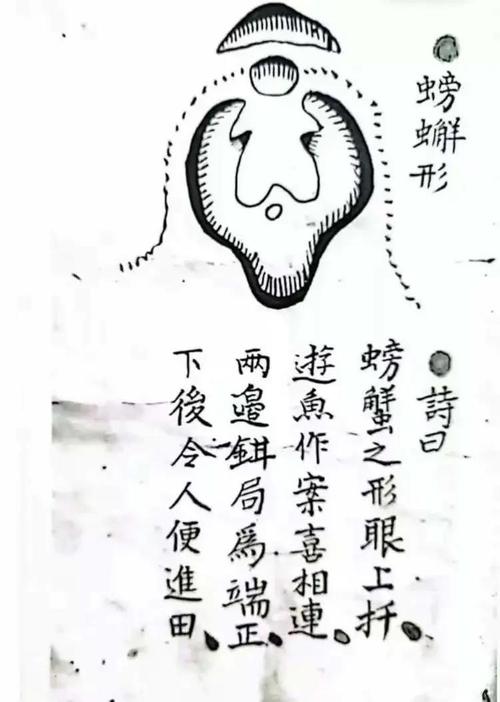 螃蠏形
詩曰
螃蟹之形眼上扦
遊魚作案喜相連
兩邉鉺局為端正
下後令人便進田